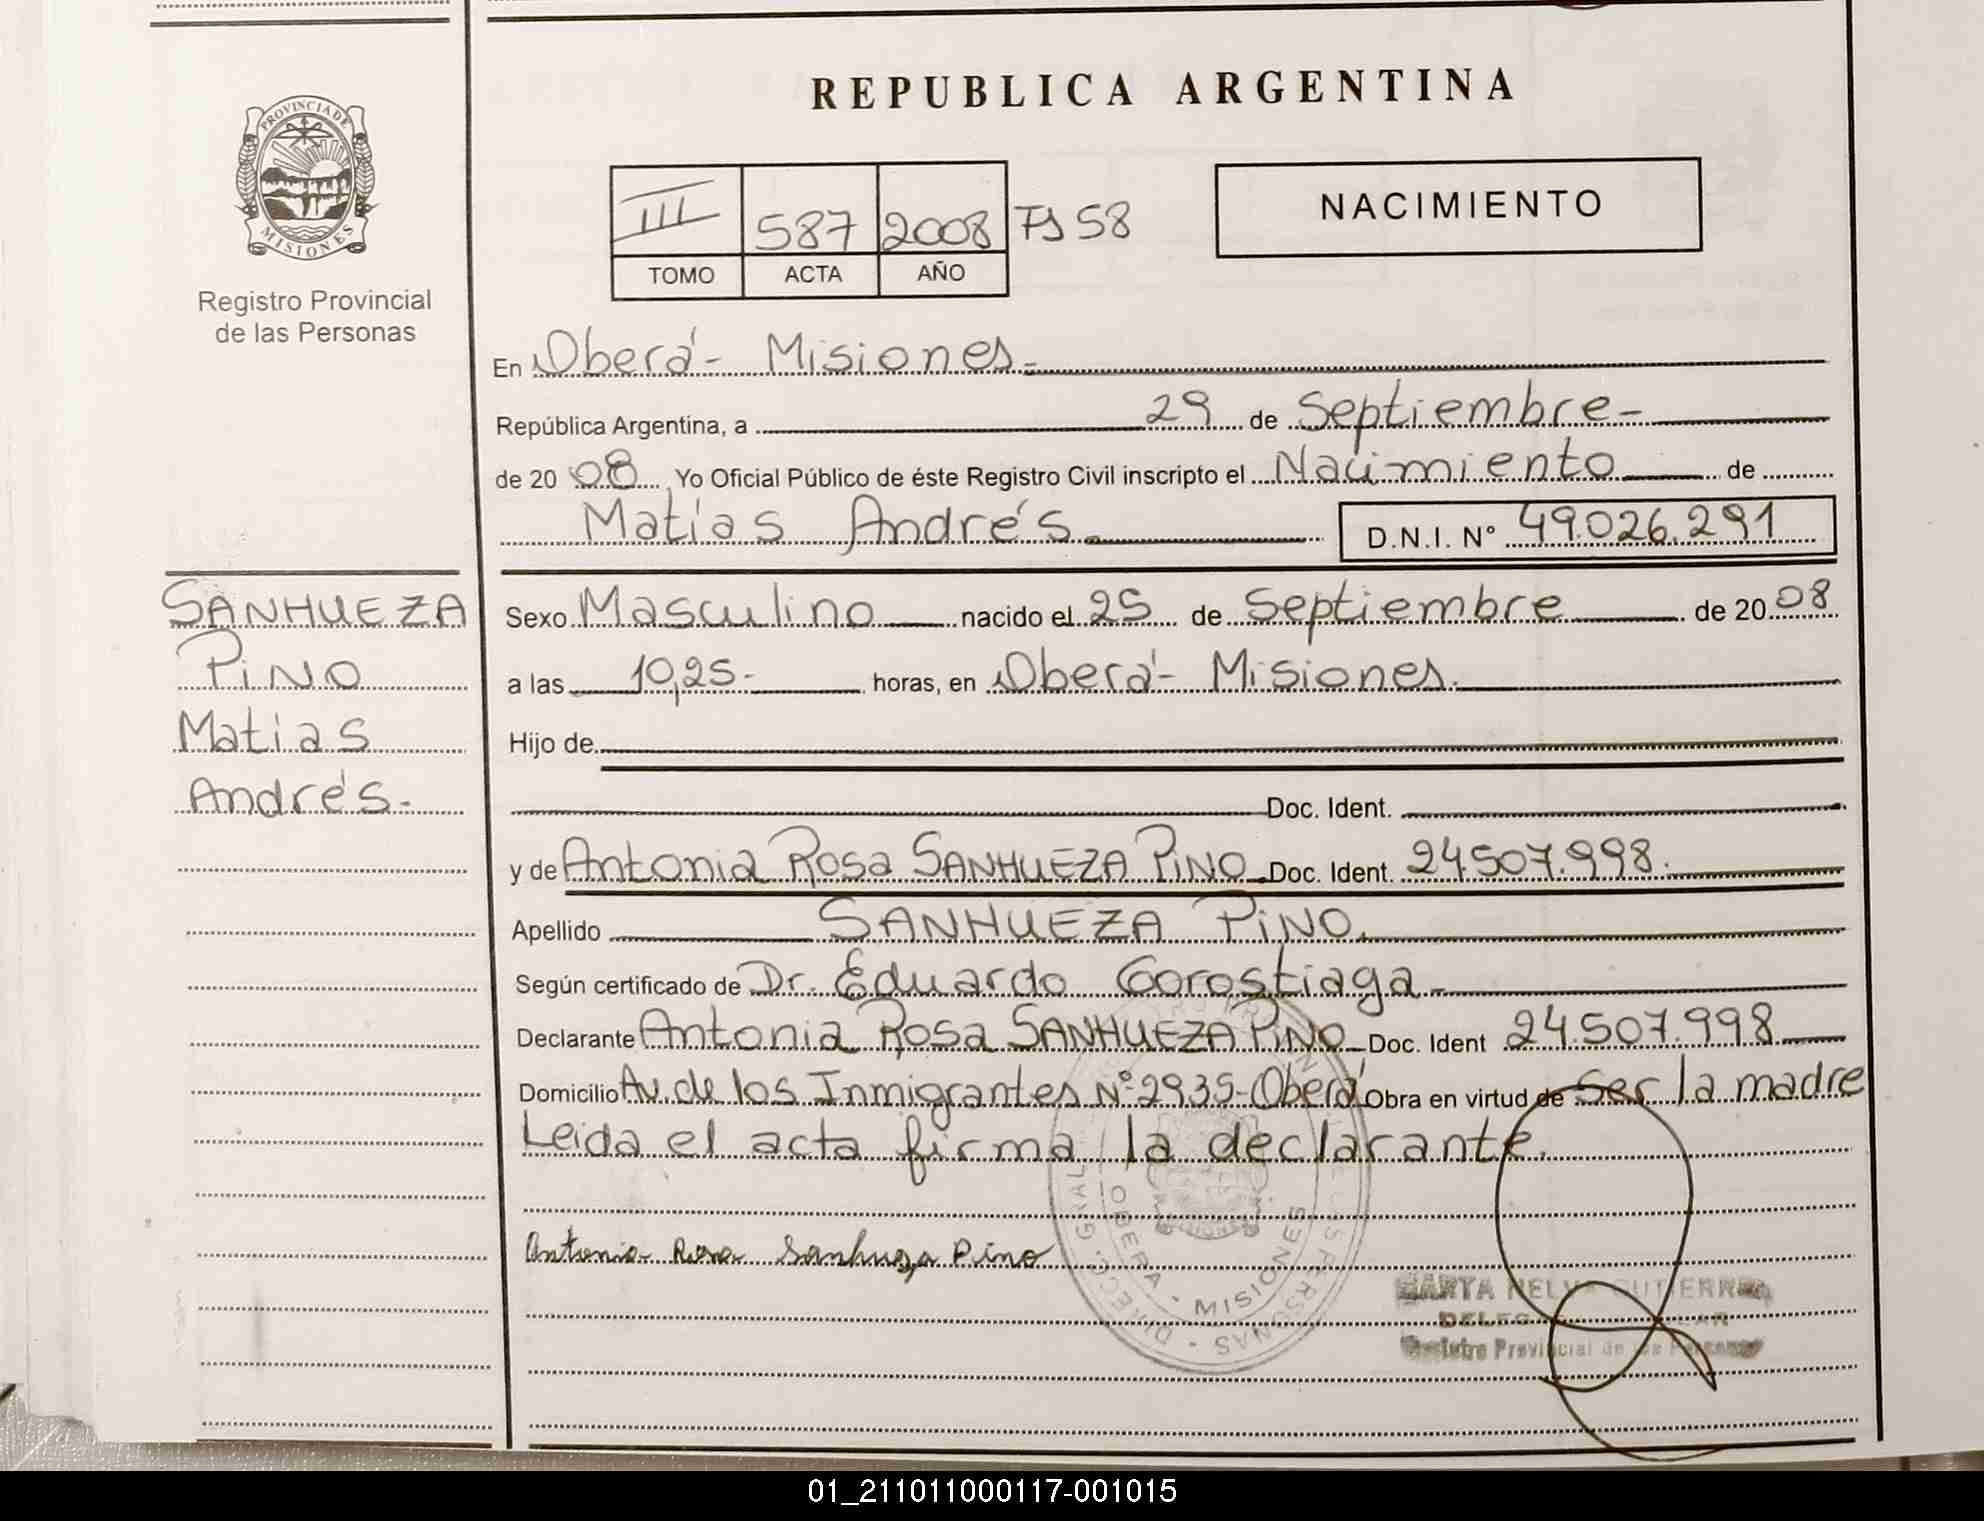 REPUBLICA ARGENTINA
PROVINCIA DE
MISIONES
Registro Provincial
de las Personas
III 587 2008 Fs 58
TOMO ACTA AÑO
NACIMIENTO
En Oberá - Misiones.-
República Argentina, a 29 de Septiembre-
de 2008 Yo Oficial Público de éste Registro Civil inscripto el Nacimiento de
Matías Andrés. D.N.I. Nº 49.026.291
SANHUEZA
PINO
Matías
Andrés.-
Sexo Masculino nacido el 25 de Septiembre de 2008
a las 10,25.- horas, en Oberá - Misiones.
Hijo de
Doc. Ident.
y de Antonia Rosa SANHUEZA PINO Doc. Ident. 24.507.998.
Apellido SANHUEZA PINO.
Según certificado de Dr. Eduardo Gorostiaga.-
Declarante Antonia Rosa SANHUEZA PINO Doc. Ident 24.507.998
Domicilio Av. de los Inmigrantes Nº 2935-Oberá Obra en virtud de Ser la madre
Leida el acta firma la declarante.
Antonia Rosa Sanhueza Pino
OBERA - MISIONES
MARTA NELVA GUTIERREZ
Registro Provincial de las Personas
01_211011000117-001015